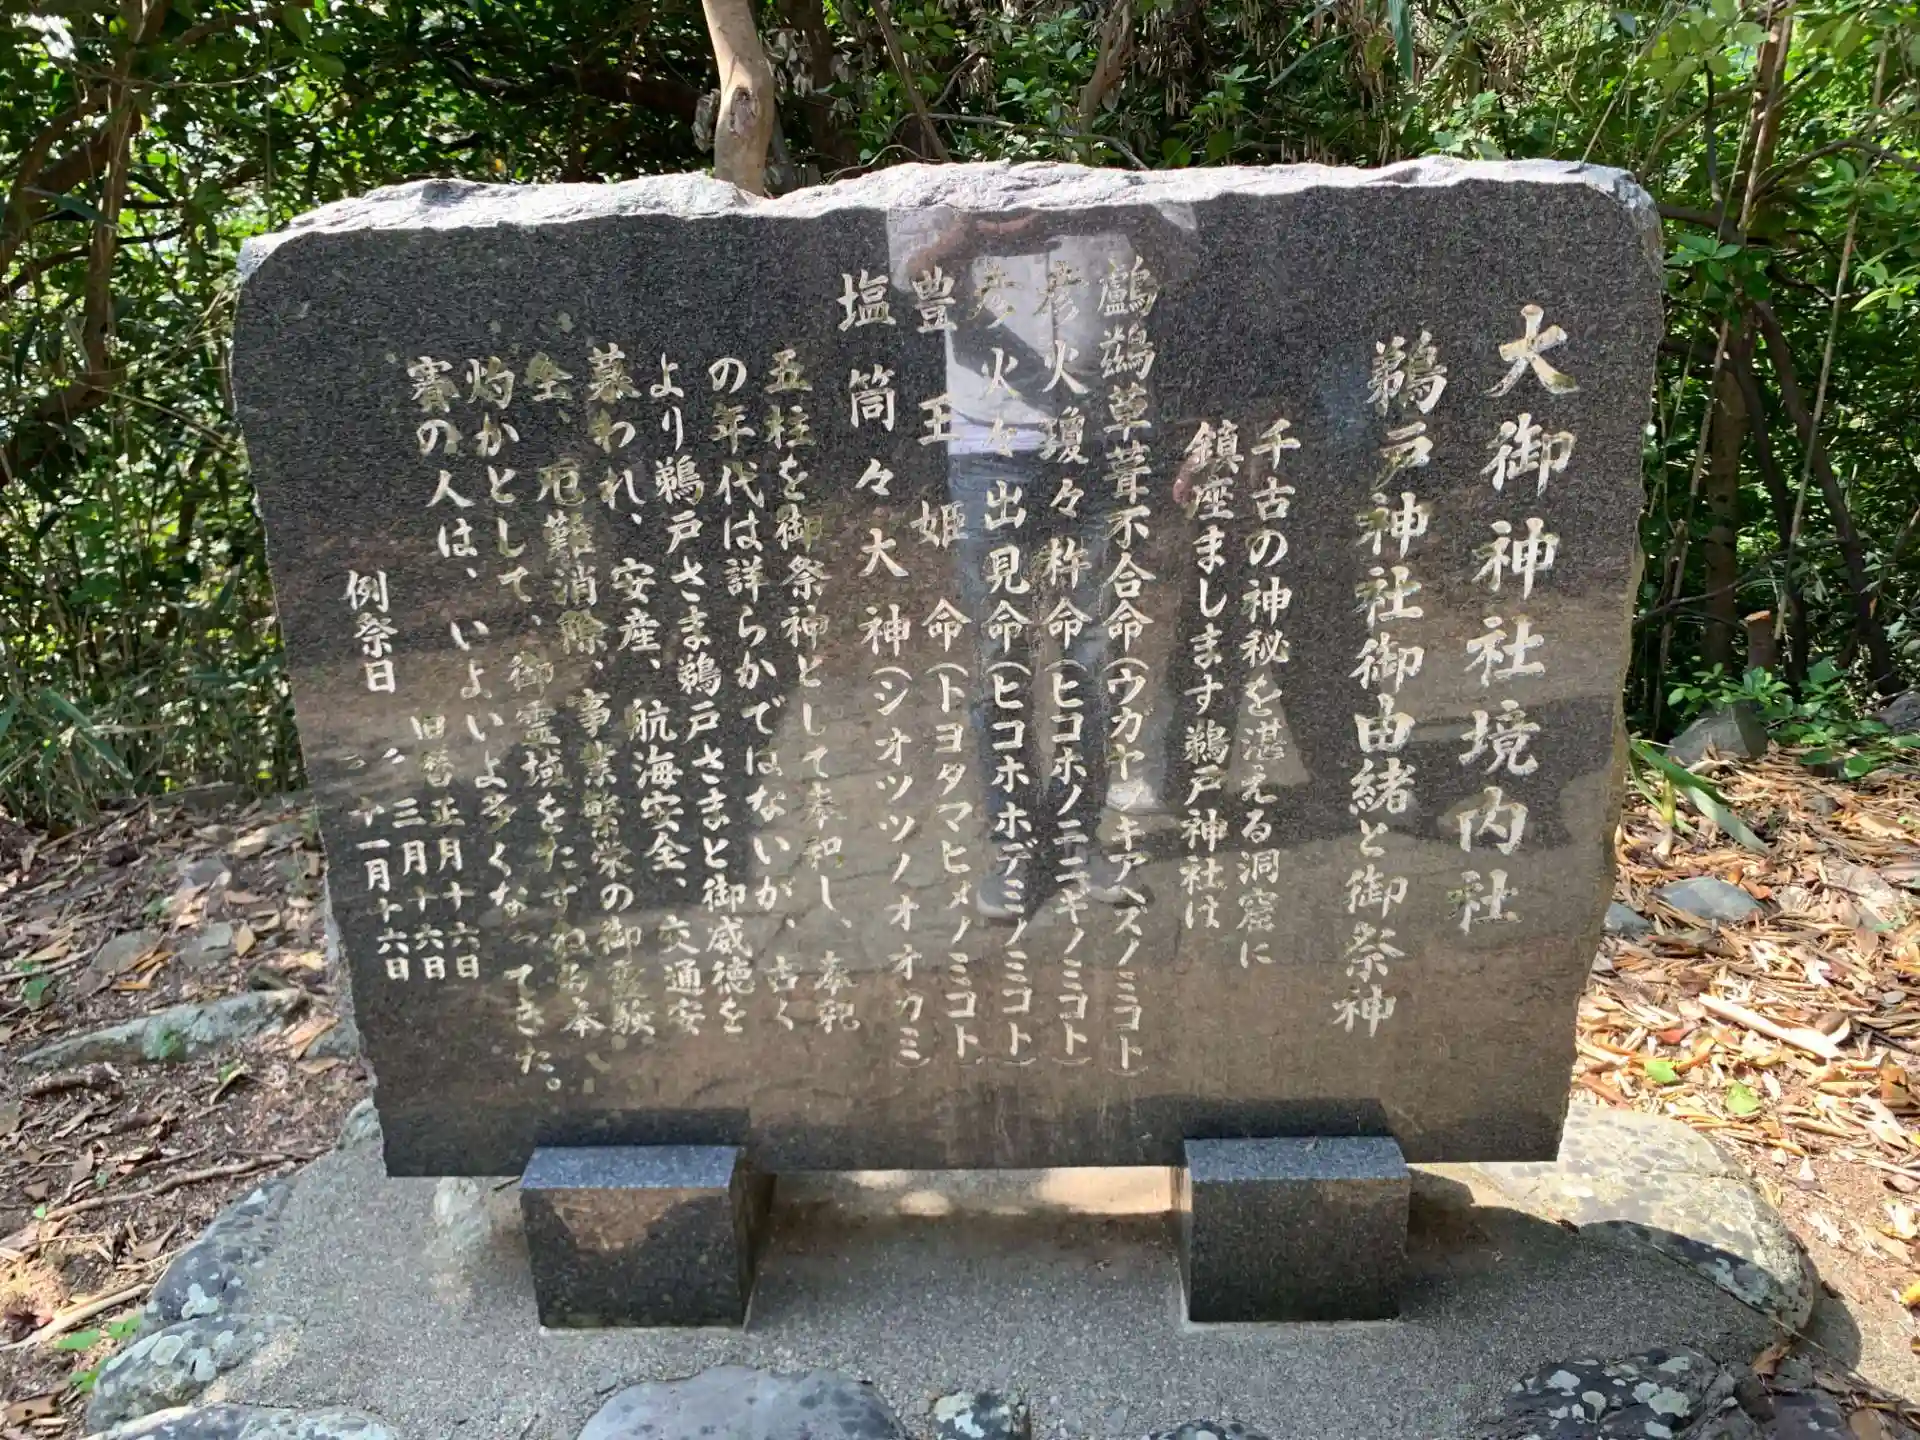 大御神社境内社
鵜戸神社御由緒と御祭神
千古の神秘を湛える洞窟に
鎮座まします鵜戸神社は
鸕鷀草葺不合命(ウガヤフキアヘズノミコト)
彦火瓊々杵命(ヒコホノニニギノミコト)
彦火々出見命(ヒコホホデミノミコト)
豊玉姫命(トヨタマヒメノミコト)
塩筒々大神(シオツツノオオカミ)
五柱を御祭神として奉和し、奉祀
の年代は詳らかではないが、古く
より鵜戸さま鵜戸さまと御威徳を
慕われ、安産、航海安全、交通安
全、厄難消除、事業繁栄の御霊験
灼かとして、御霊域をたずねる参
賽の人は、いよいよ多くなってきた。
例祭日 旧暦正月十六日
〃 三月十六日
〃 十一月十六日